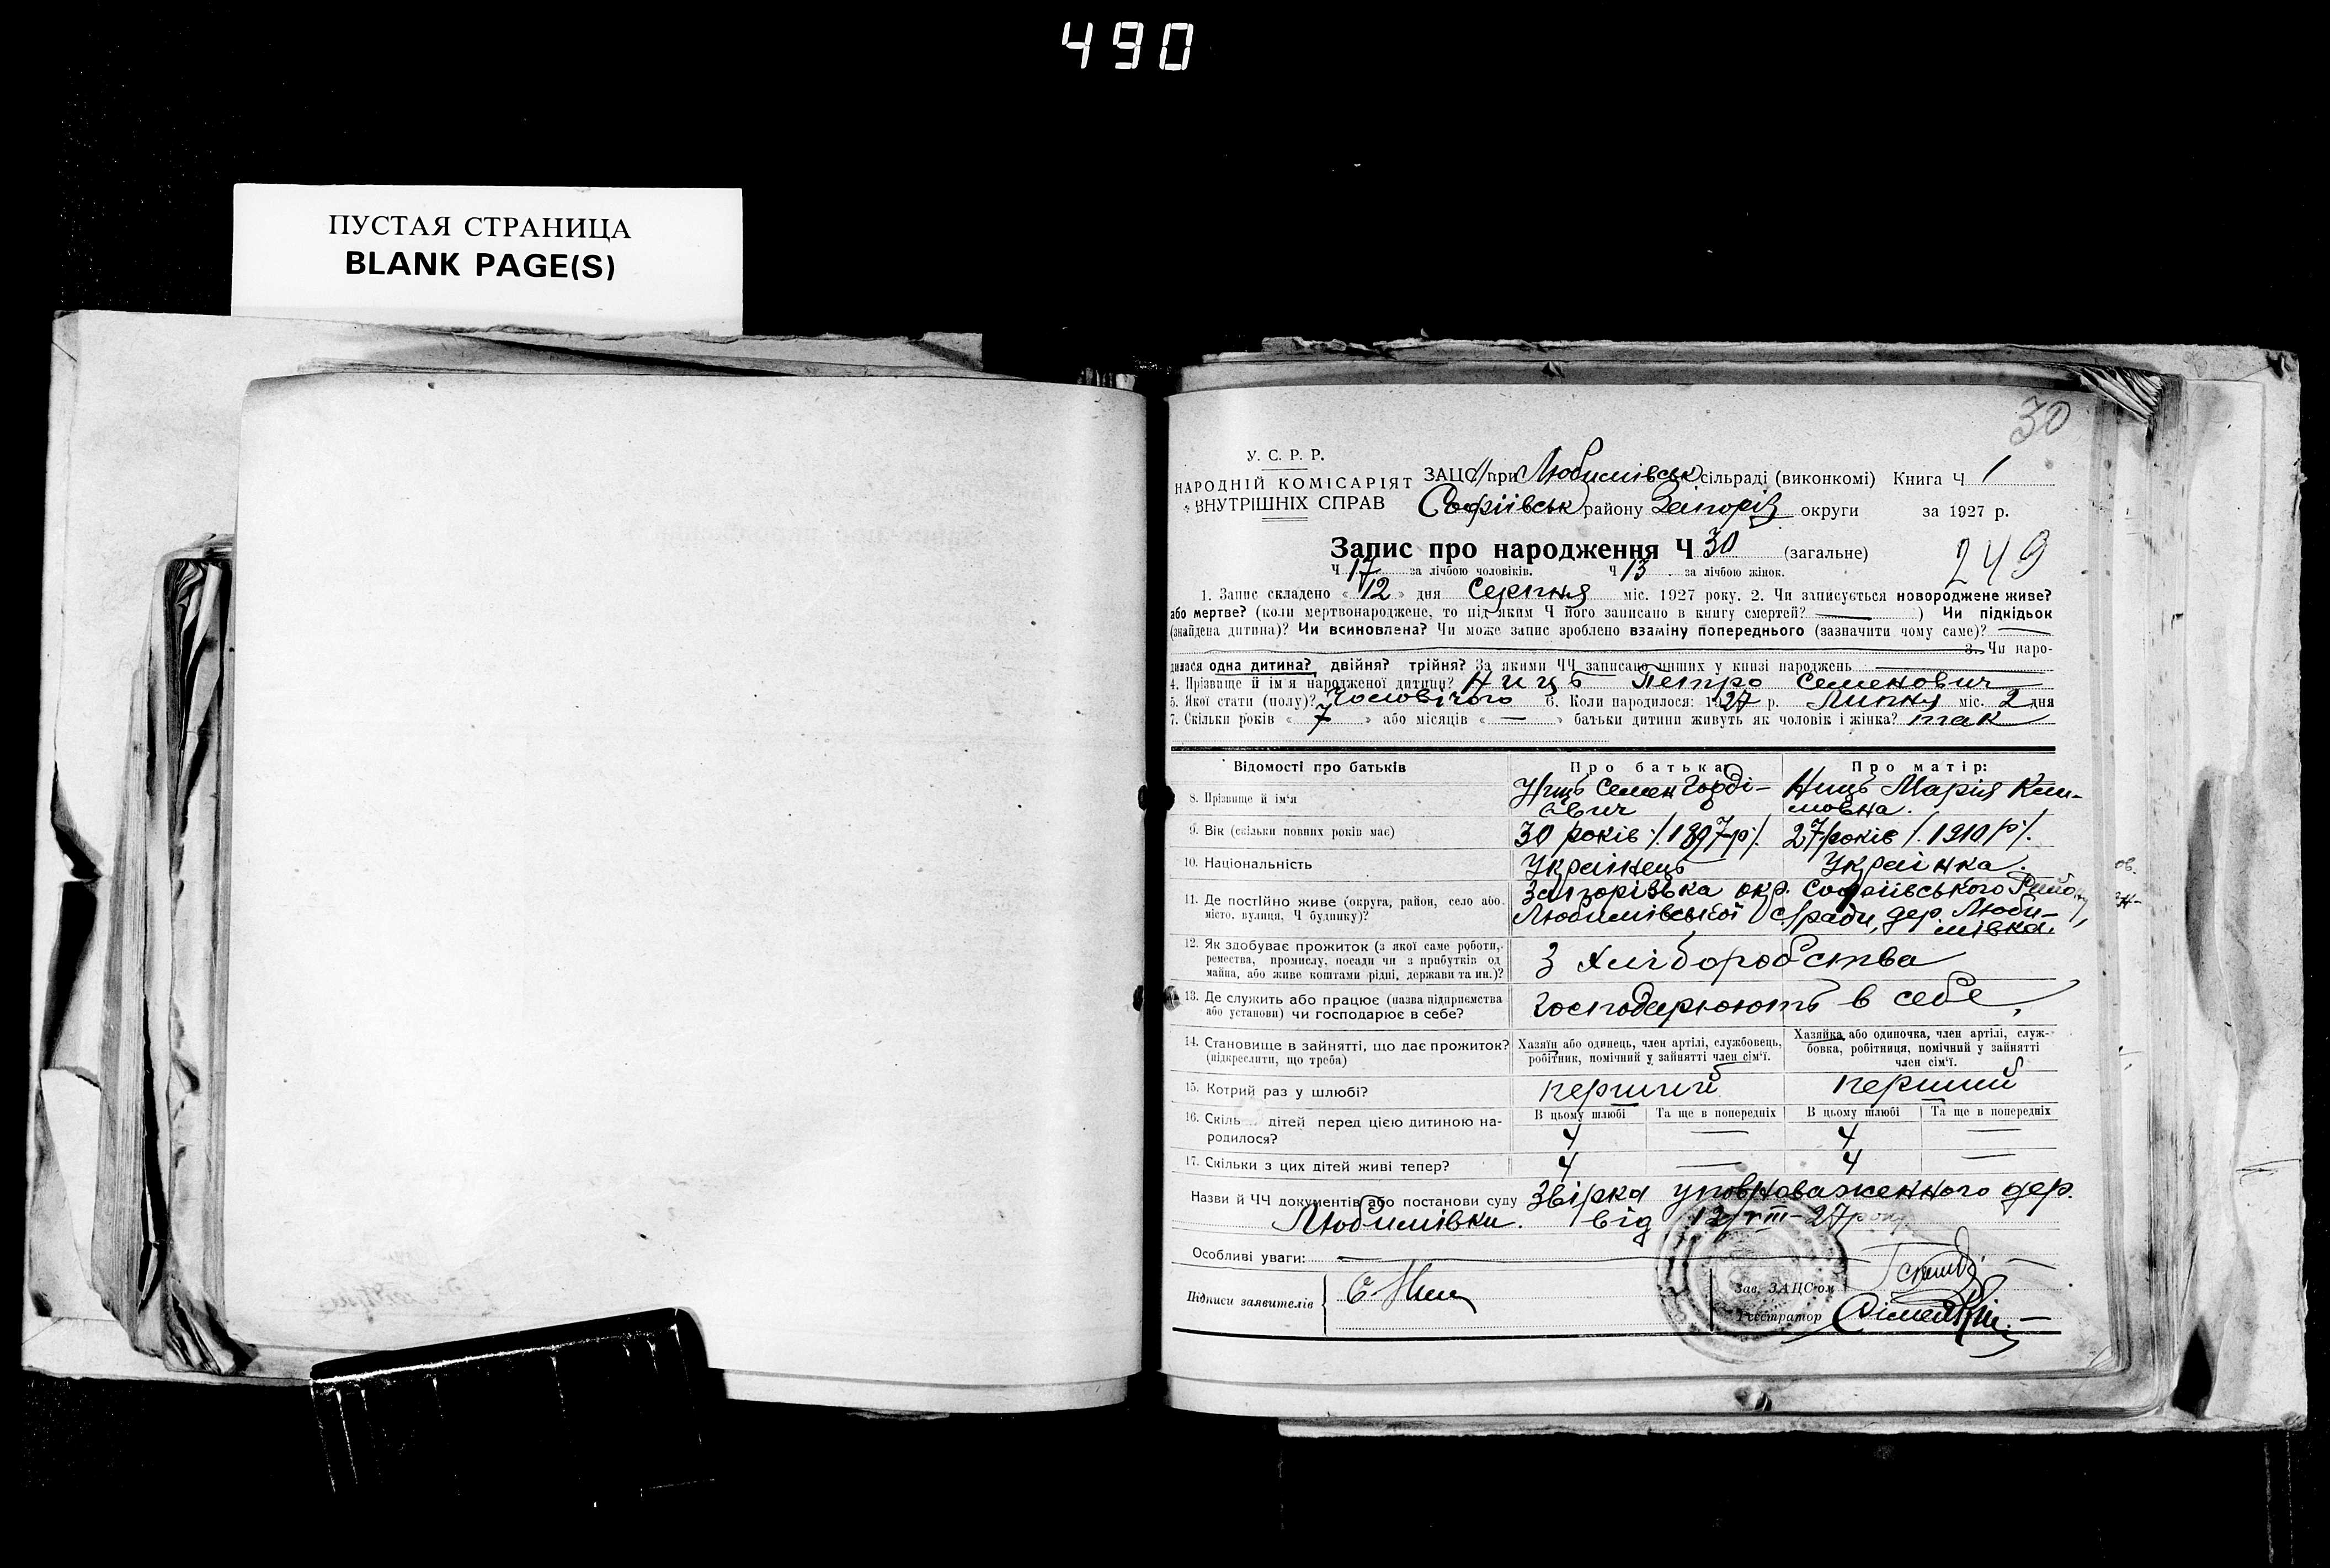 490
ПУСТАЯ СТРАНИЦА
BLANK PAGE(S)
30
У. С. Р. Р.
НАРОДНІЙ КОМІСАРІЯТ
ВНУТРІШНІХ СПРАВ
ЗАЦС при Любимівськ сільраді (виконкомі) Книга Ч 1
Софіївськ району Запоріз округи за 1927 р.
Запис про народження Ч 30 (загальне)
249
Ч 17 за лічбою чоловіків. Ч 13 за лічбою жінок.
1. Запис складено « 12 » дня Серпня міс. 1927 року. 2. Чи записується новороджене живе?
або мертве? (коли мертвонароджене, то під яким Ч його записано в книгу смертей? ) Чи підкідьок
(знайдена дитина)? Чи всиновлена? Чи може запис зроблено взаміну попереднього (зазначити чому саме)?
3. Чи наро-
дилася одна дитина? двійня? трійня? За якими ЧЧ записано инших у книзі народжень
4. Прізвище й ім'я народженої дитини? Ниць Петро Семенович
5. Якої стати (полу)? Чоловічого 6. Коли народилося: 1927 р. Липня міс. 2 дня
7. Скільки років « 7 » або місяців « — » батьки дитини живуть як чоловік і жінка? так
Відомості про батьків Про батька: Про матір:
8. Прізвище й ім'я Ниць Семен Горді- Ниць Марія Кли-
євич мовна.
9. Вік (скільки повних років має) 30 років /.1897 р/. 27 років /.1910 р/.
10. Національність Українець Українка.
11. Де постійно живе (округа, район, село або Запорізька окр. Софіївського Району,
місто, вулиця, Ч будинку)? Любимівської с/ради, дер. Люби-
мівка.
12. Як здобуває прожиток (з якої саме роботи,
ремества, промислу, посади чи з прибутків од
майна, або живе коштами рідні, держави та ин.)? З хліборобства
13. Де служить або працює (назва підприємства
або установи) чи господарює в себе? господарюють в себе
14. Становище в зайнятті, що дає прожиток? Хазяїн або одинець, член артілі, службовець, Хазяйка або одиночка, член артілі, служ-
(підкреслити, що треба) робітник, помічний у зайнятті член сім'ї. бовка, робітниця, помічний у зайнятті
член сім'ї.
15. Котрий раз у шлюбі? перший перший
16. Скіль дітей перед цією дитиною на- В цьому шлюбі Та ще в попередніх В цьому шлюбі Та ще в попередніх
родилося? 4 — 4 —
17. Скільки з цих дітей живі тепер? 4 — 4 —
Назви й ЧЧ документів або постанови суду Звірка уповноваженного дер.
Любимівки. від 12/VIII-27 року
Особливі уваги: —
Підписи заявителів С Ниц
Зав. ЗАЦС-ом
Реєстратор